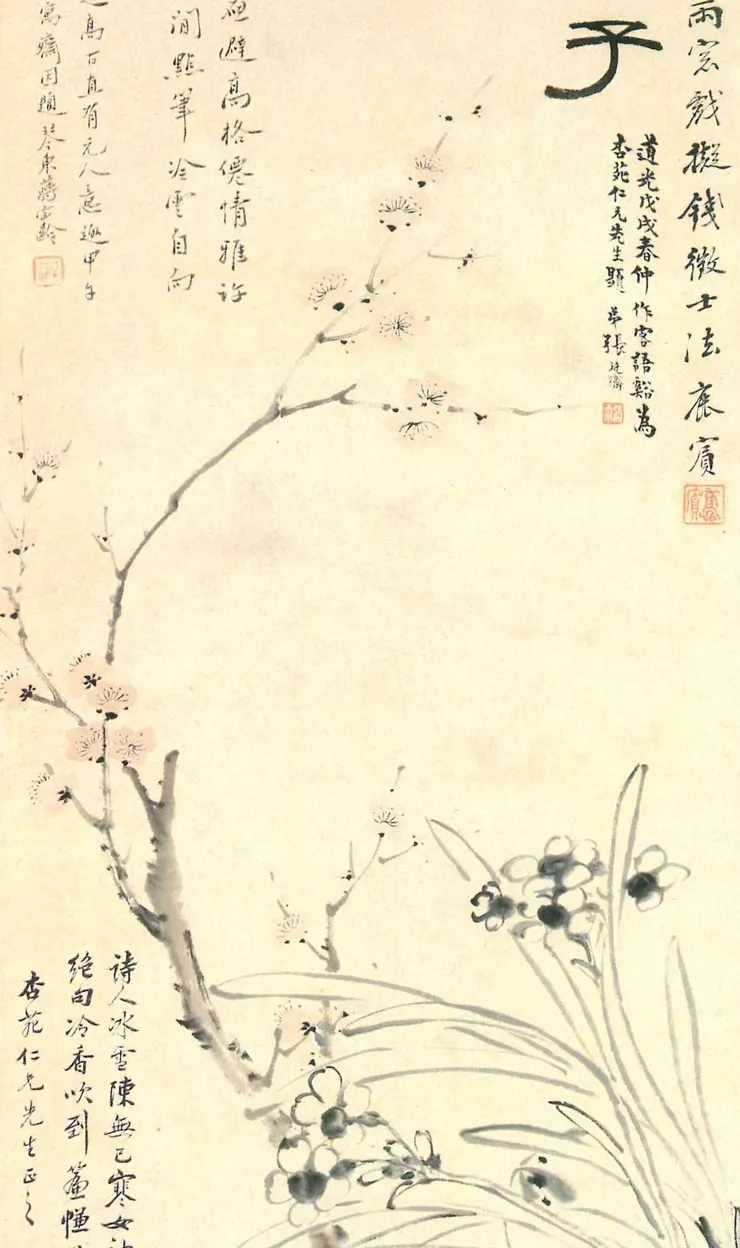 子
道光戊戌春仲作客語谿為
杏苑仁兄先生題 弟張廷濟
雨窓戲擬錢徵士法 宸賓
避高格僊情雅許
澗點筆冷雲自向
高古直有元人意趣甲午
寓齋因題 琴東蔣寶齡
詩人冰雪陳無己寒女
絕句冷香吹到簾㡘
杏苑仁兄先生正之